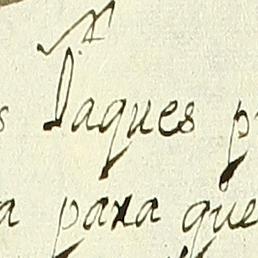 s Vaques p
a para que